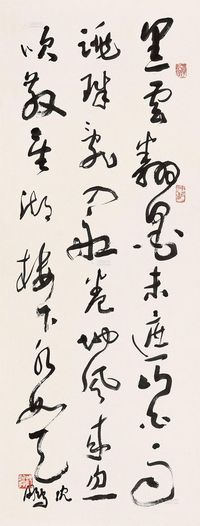 黑雲翻墨未遮山白雨
跳珠亂入船卷地風來忽
吹散望湖樓下水如天
沈鵬